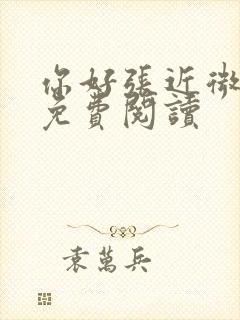 你好張近微
免費閱讀
袁萬兵